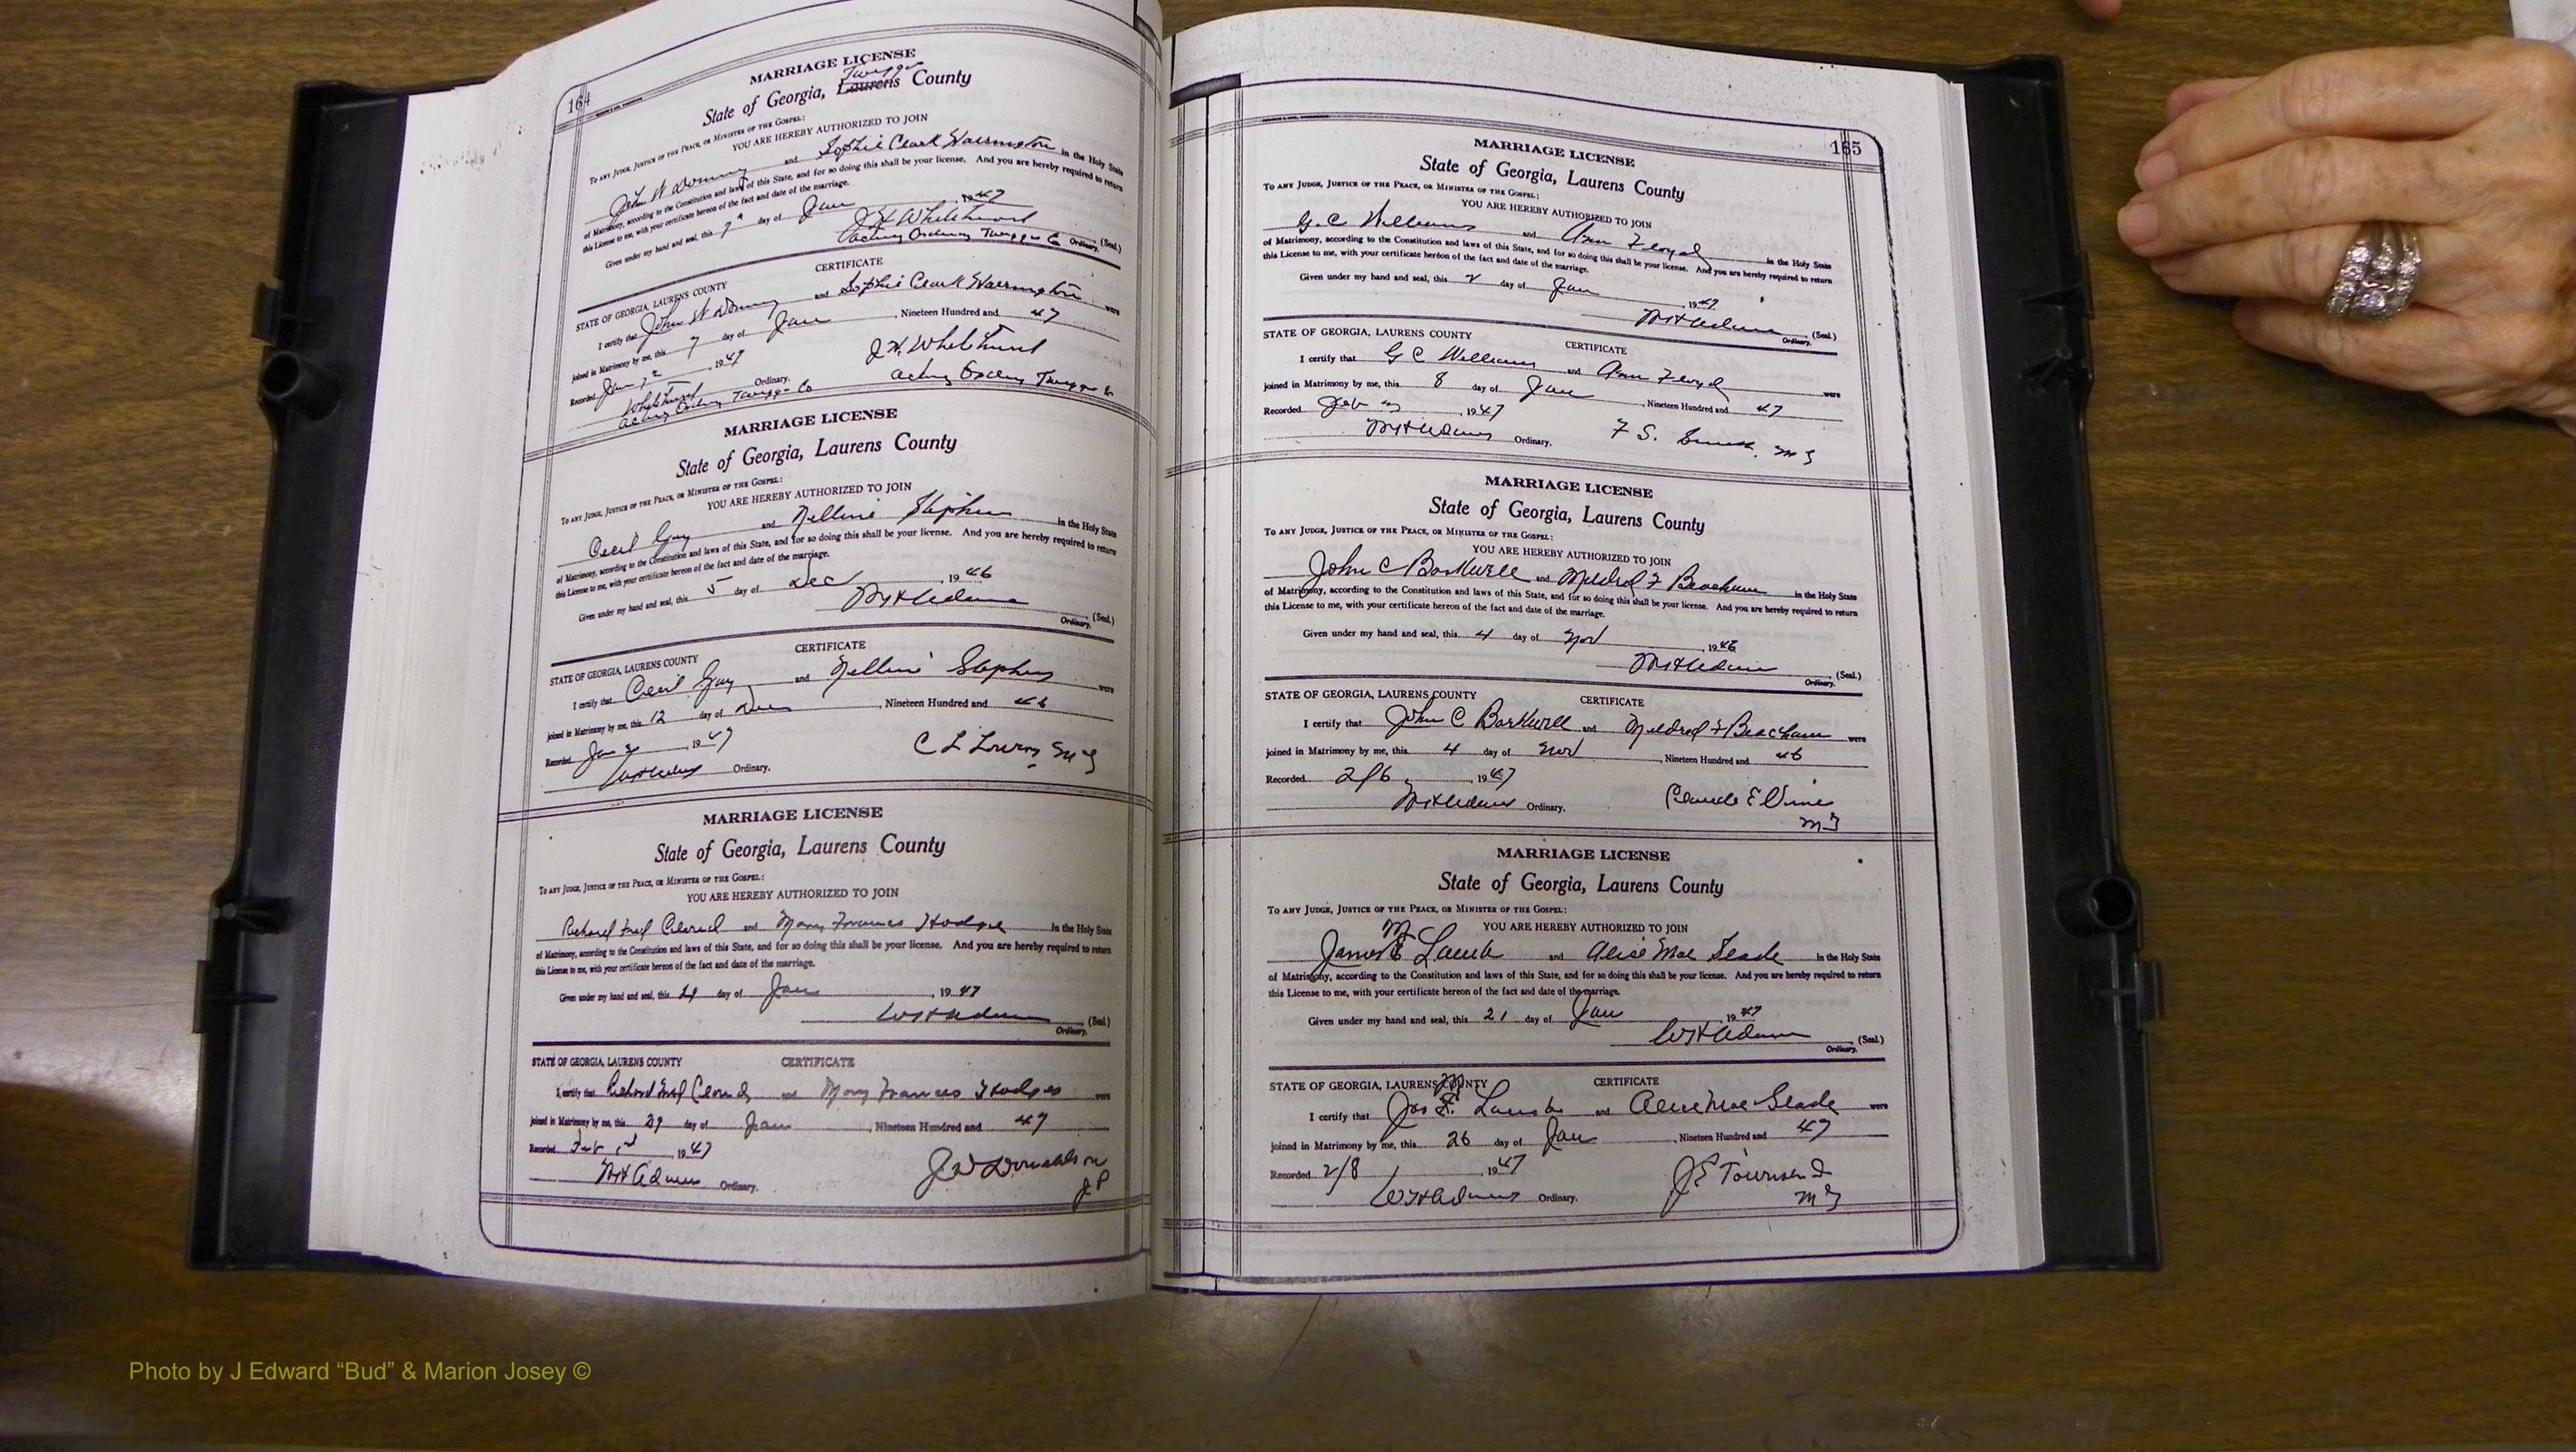 164
MARRIAGE LICENSE
Twiggs
State of Georgia, Laurens County
To any Judge, Justice of the Peace, or Minister of the Gospel:
YOU ARE HEREBY AUTHORIZED TO JOIN
John W and Sophie Clark Warrington in the Holy State
of Matrimony, according to the Constitution and laws of this State, and for so doing this shall be your license. And you are hereby required to return
this License to me, with your certificate hereon of the fact and date of the marriage.
Given under my hand and seal, this 7th day of Jan, 1947
J H Whitehurst (Seal.)
Acting Ordinary Twiggs Co Ordinary.
CERTIFICATE
STATE OF GEORGIA, LAURENS COUNTY
I certify that John W and Sophie Clark Warrington were
joined in Matrimony by me, this 7 day of Jan, Nineteen Hundred and 47
Recorded Jan 1947 J. H. Whitehurst
Whitehurst Ordinary. Acting Ordinary Twiggs Co
Acting Ordinary Twiggs Co
MARRIAGE LICENSE
State of Georgia, Laurens County
To any Judge, Justice of the Peace, or Minister of the Gospel:
YOU ARE HEREBY AUTHORIZED TO JOIN
Cecil Gay and Nelline Stephens in the Holy State
of Matrimony, according to the Constitution and laws of this State, and for so doing this shall be your license. And you are hereby required to return
this License to me, with your certificate hereon of the fact and date of the marriage.
Given under my hand and seal, this 5 day of Dec, 1946
W H Adams (Seal.)
Ordinary.
CERTIFICATE
STATE OF GEORGIA, LAURENS COUNTY
I certify that Cecil Gay and Nelline Stephens were
joined in Matrimony by me, this 12 day of Dec, Nineteen Hundred and 46
Recorded Jan 1947 C L M G
W H Adams Ordinary.
MARRIAGE LICENSE
State of Georgia, Laurens County
To any Judge, Justice of the Peace, or Minister of the Gospel:
YOU ARE HEREBY AUTHORIZED TO JOIN
Richard Fred and Mary Frances Hodges in the Holy State
of Matrimony, according to the Constitution and laws of this State, and for so doing this shall be your license. And you are hereby required to return
this License to me, with your certificate hereon of the fact and date of the marriage.
Given under my hand and seal, this 29 day of Jan, 1947
W H Adams (Seal.)
Ordinary.
STATE OF GEORGIA, LAURENS COUNTY CERTIFICATE
I certify that Richard Fred and Mary Frances Hodges were
joined in Matrimony by me, this 29 day of Jan, Nineteen Hundred and 47
Recorded Feb 1st, 1947 J W Donaldson
W H Adams Ordinary. J P
165
MARRIAGE LICENSE
State of Georgia, Laurens County
To any Judge, Justice of the Peace, or Minister of the Gospel:
YOU ARE HEREBY AUTHORIZED TO JOIN
G. C Williams and Ann Floyd in the Holy State
of Matrimony, according to the Constitution and laws of this State, and for so doing this shall be your license. And you are hereby required to return
this License to me, with your certificate hereon of the fact and date of the marriage.
Given under my hand and seal, this 2 day of Jan, 1947
W H Adams (Seal.)
Ordinary.
STATE OF GEORGIA, LAURENS COUNTY CERTIFICATE
I certify that G C Williams and Ann Floyd were
joined in Matrimony by me, this 8 day of Jan, Nineteen Hundred and 47
Recorded Feb, 1947
W H Adams Ordinary. F S. M G
MARRIAGE LICENSE
State of Georgia, Laurens County
To any Judge, Justice of the Peace, or Minister of the Gospel:
YOU ARE HEREBY AUTHORIZED TO JOIN
John C Barkwell and Mildred F Beacham in the Holy State
of Matrimony, according to the Constitution and laws of this State, and for so doing this shall be your license. And you are hereby required to return
this License to me, with your certificate hereon of the fact and date of the marriage.
Given under my hand and seal, this 4 day of Nov, 1946
W H Adams (Seal.)
Ordinary.
STATE OF GEORGIA, LAURENS COUNTY CERTIFICATE
I certify that John C Barkwell and Mildred F Beacham were
joined in Matrimony by me, this 4 day of Nov, Nineteen Hundred and 46
Recorded 2/6, 1947
W H Adams Ordinary. Claude E Vines
M G
MARRIAGE LICENSE
State of Georgia, Laurens County
To any Judge, Justice of the Peace, or Minister of the Gospel:
YOU ARE HEREBY AUTHORIZED TO JOIN
M
James E Lamb and Alice Mae Slade in the Holy State
of Matrimony, according to the Constitution and laws of this State, and for so doing this shall be your license. And you are hereby required to return
this License to me, with your certificate hereon of the fact and date of the marriage.
Given under my hand and seal, this 21 day of Jan 1947
W H Adams (Seal.)
Ordinary.
STATE OF GEORGIA, LAURENS COUNTY CERTIFICATE
M
I certify that Jas E. Lamb and Alice Mae Slade were
joined in Matrimony by me, this 26 day of Jan, Nineteen Hundred and 47
Recorded 2/8, 1947 J E Townsend
W H Adams Ordinary. M G
Photo by J Edward “Bud” & Marion Josey ©